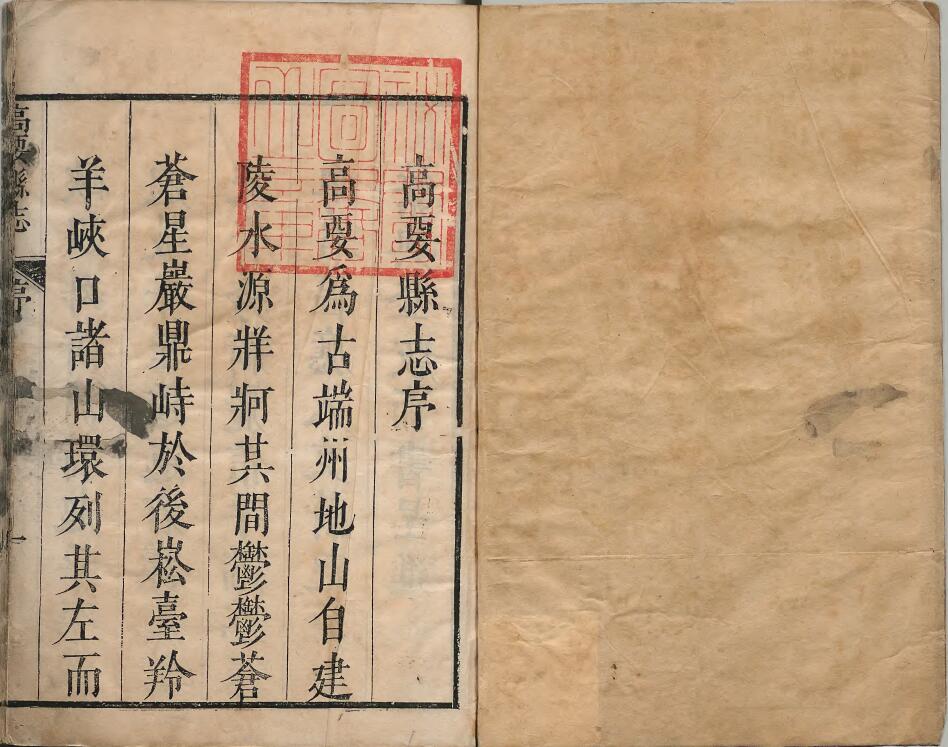 高要縣志序
高要爲古端州地山自建
陵水源牂牁其間鬱鬱蒼
蒼星巖鼎峙於後崧臺羚
羊峽口諸山環列其左而
高要縣志
序
一